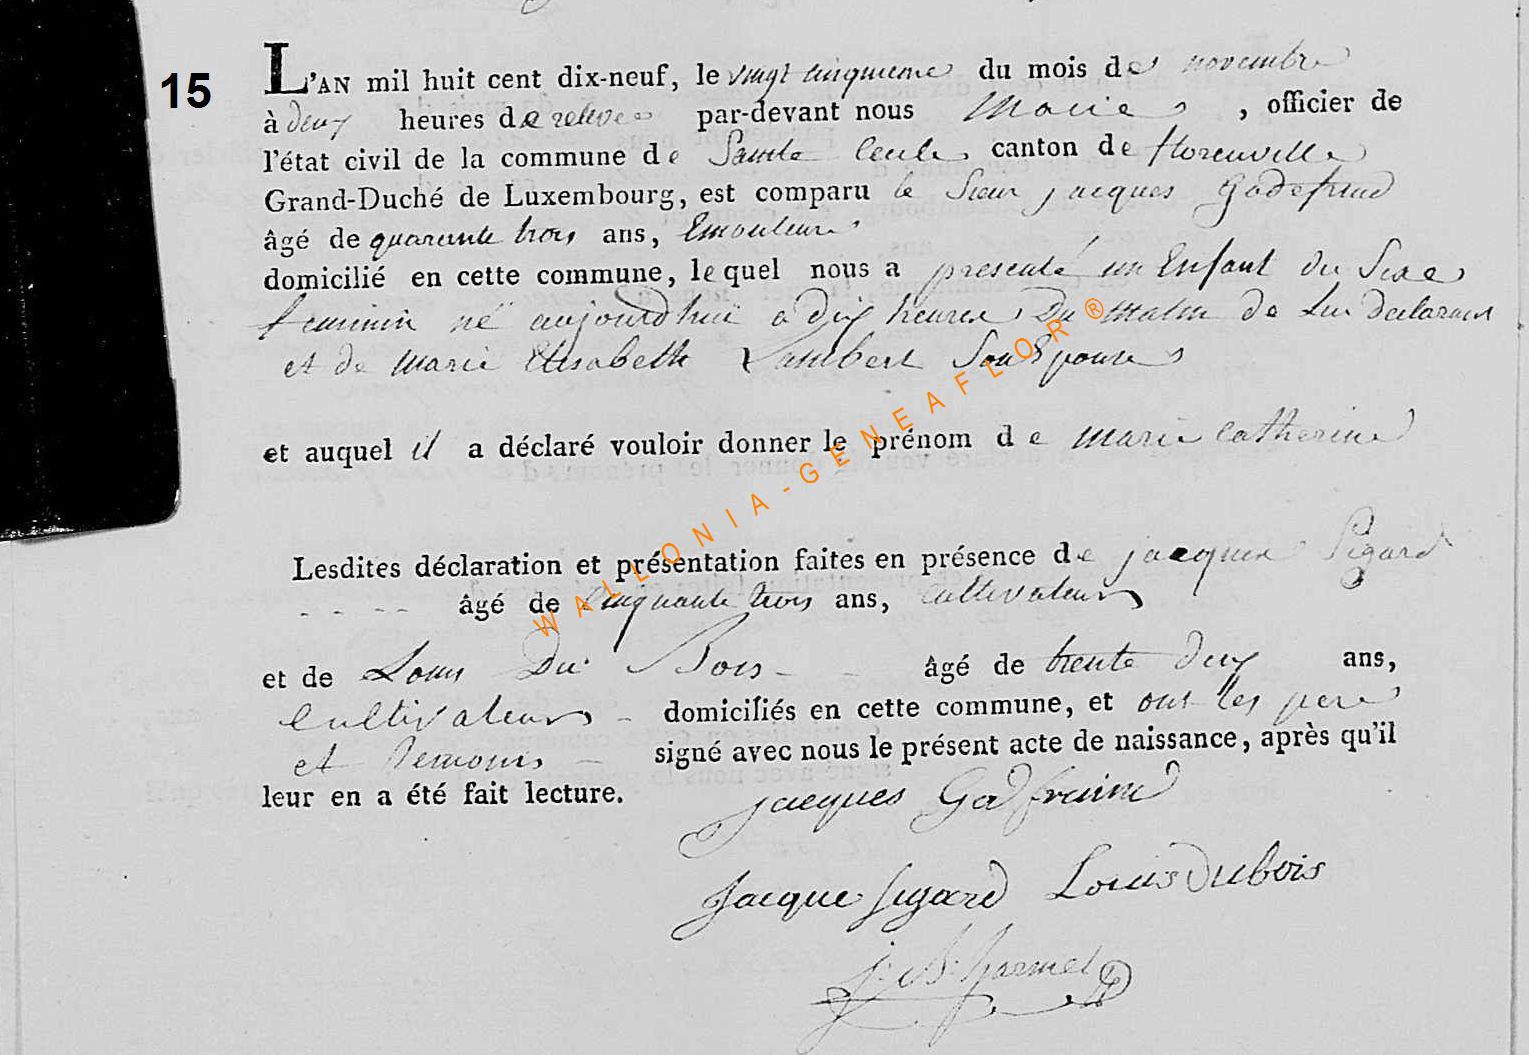 15
L'AN mil huit cent dix-neuf, le vingt cinquieme du mois de novembre
à deux heures de relevee par-devant nous Maire, officier de
l'état civil de la commune de Sainte Cecile canton de florenville
Grand-Duché de Luxembourg, est comparu le Sieur jacques Godefrind
âgé de quarante trois ans, Emouleur
domicilié en cette commune, lequel nous a presenté un Enfant du Sexe
feminin né aujourd'hui a dix heures Du matin de Lui declarant
et de Marie Elisabeth Lambert Son Epouse
et auquel il a déclaré vouloir donner le prénom de Marie Catherine
Lesdites déclaration et présentation faites en présence de jacques Pigard
---- âgé de Cinquante trois ans, Cultivateur
et de Louis Du Bois - - âgé de trente deux ans,
Cultivateur - domiciliés en cette commune, et ont les pere
et temoins - signé avec nous le présent acte de naissance, après qu'il
leur en a été fait lecture.
jacques Godfrind
Jacque pigard Louis Dubois
j: B: harmel
WALLONIA-GENEAFLOR®